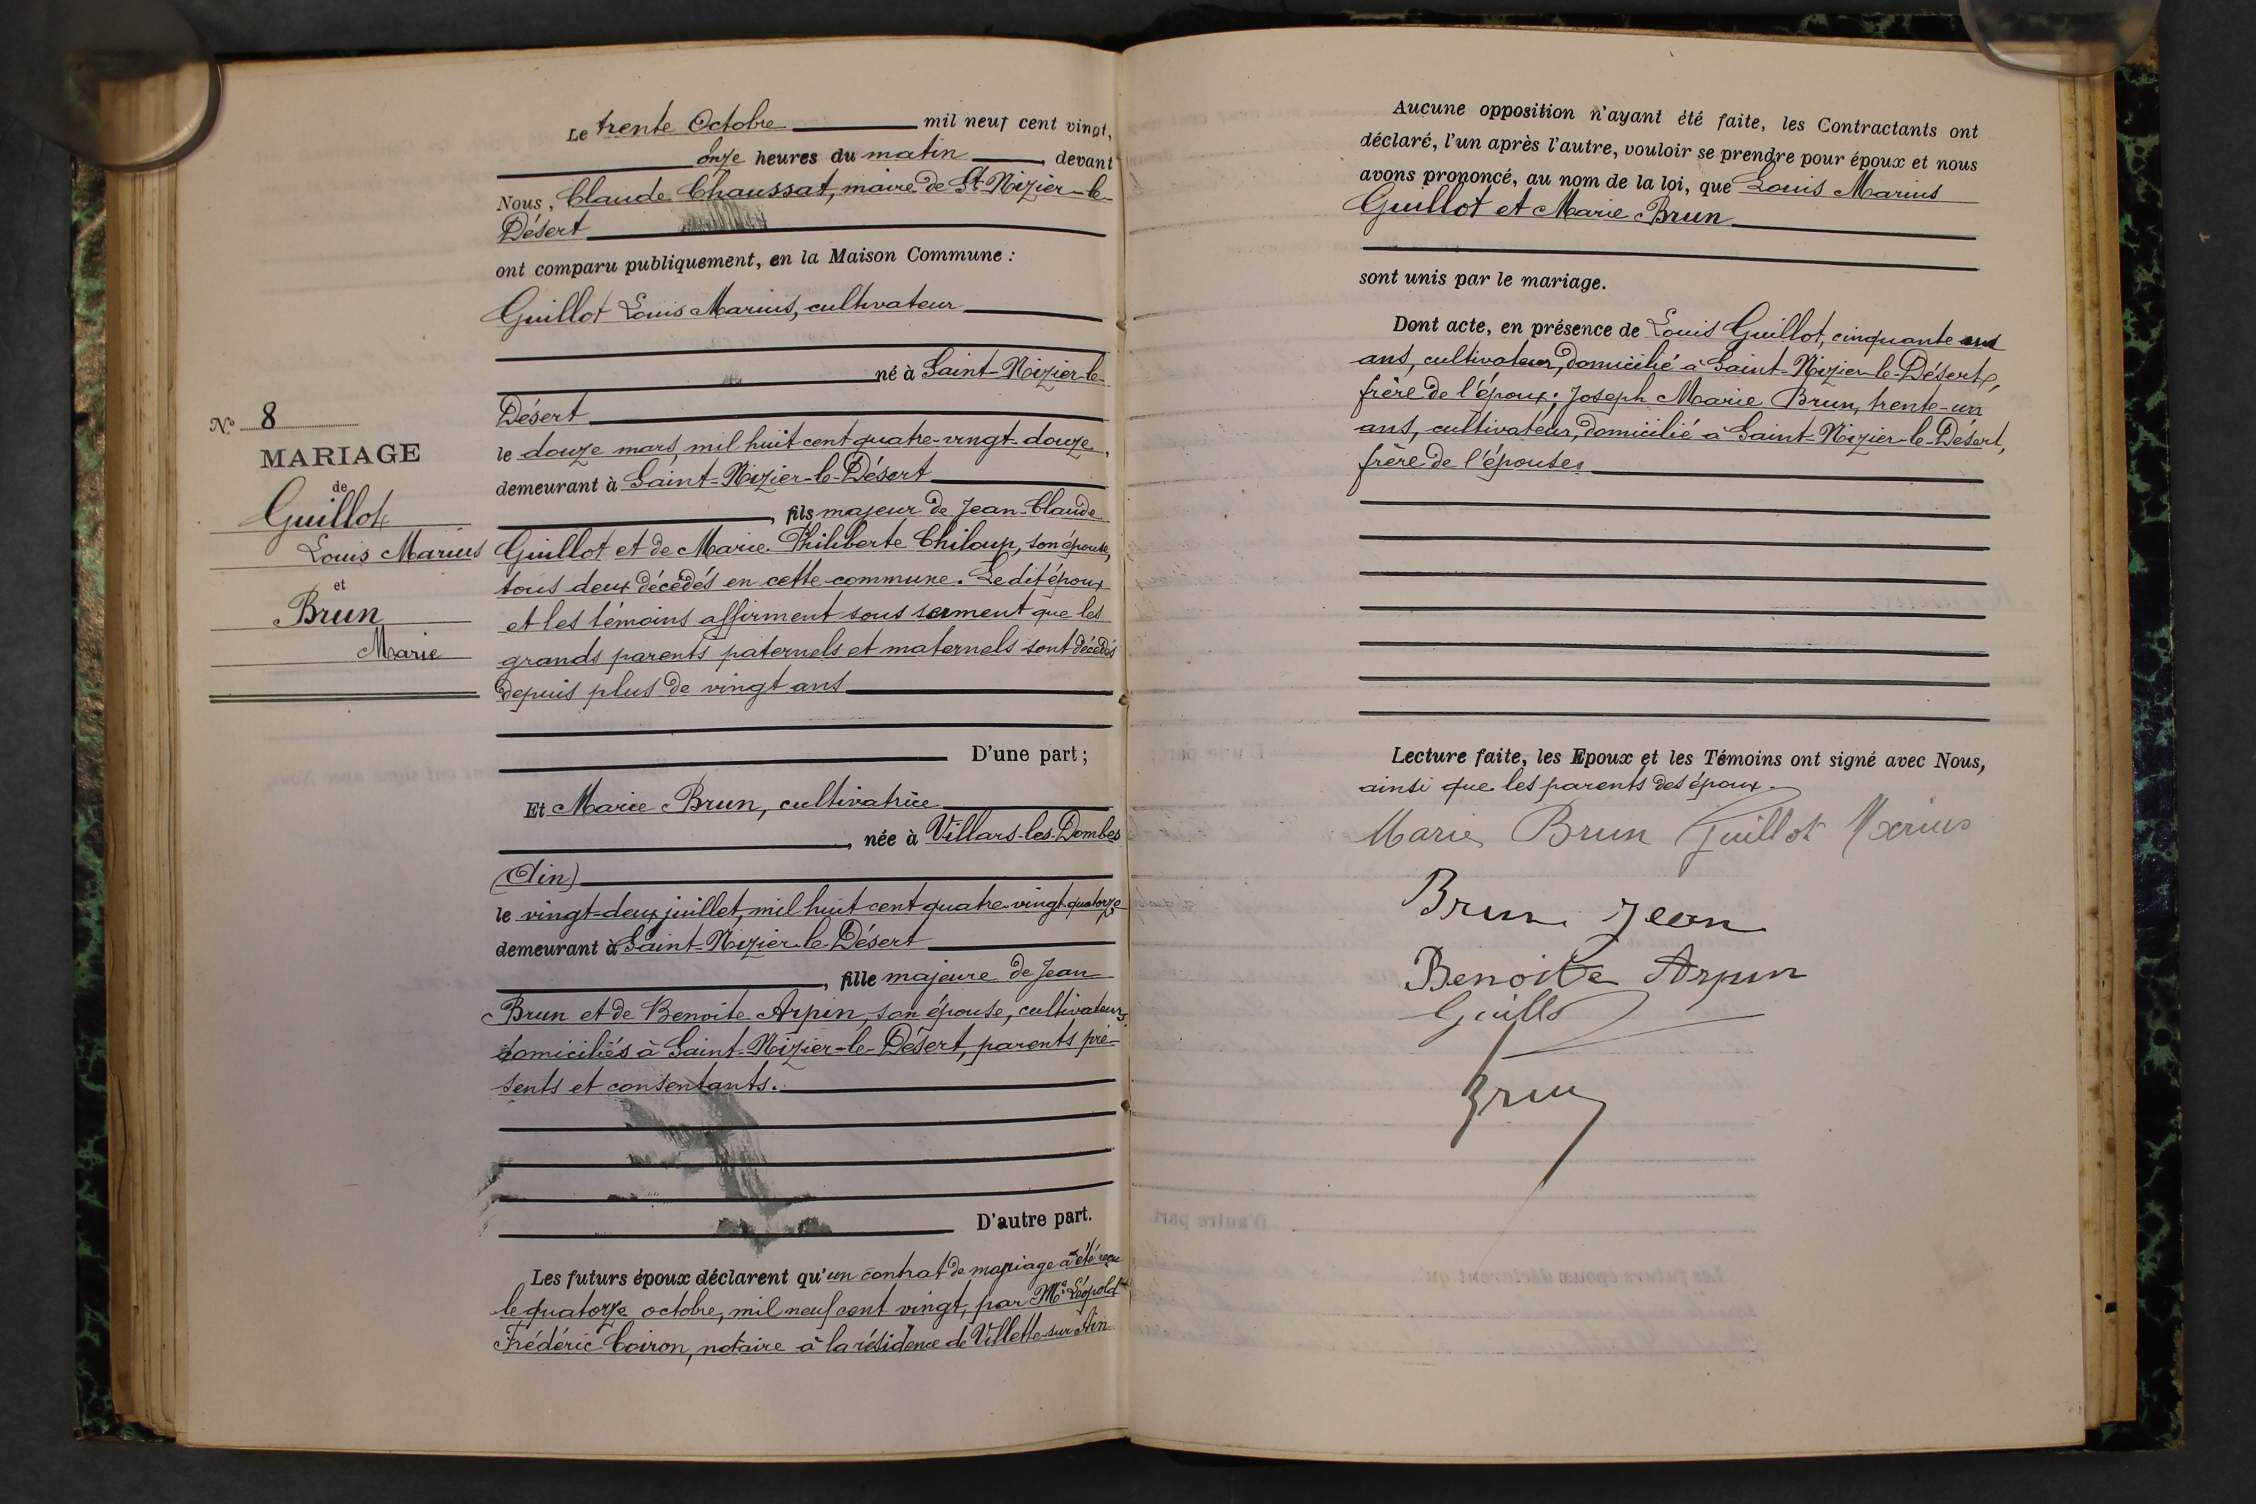 Le trente Octobre mil neuf cent vingt,
onze heures du matin, devant
Nous, Claude Chaussat, maire de St-Nizier-le-
Désert
ont comparu publiquement, en la Maison Commune :
Guillot Louis Marius, cultivateur
né à Saint-Nizier-le-
Désert
le douze mars, mil huit cent quatre-vingt-douze,
demeurant à Saint-Nizier-le-Désert
, fils majeur de Jean-Claude
Guillot et de Marie Philiberte Chiloup, son épouse,
tous deux décédés en cette commune. Le dit époux
et les témoins affirment sous serment que les
grands parents paternels et maternels sont décédés
depuis plus de vingt ans
D'une part ;
N° 8
MARIAGE
de
Guillot
Louis Marius
et
Brun
Marie
Et Marie Brun, cultivatrice
, née à Villars-les-Dombes
(Ain)
le vingt-deux juillet, mil huit cent quatre-vingt-quatorze
demeurant à Saint-Nizier-le-Désert
, fille majeure de Jean
Brun et de Benoite Arpin, son épouse, cultivateurs,
domiciliés à Saint-Nizier-le-Désert, parents pré-
sents et consentants.
D'autre part.
Les futurs époux déclarent qu'un contrat de mariage a été reçu
le quatorze octobre, mil neuf cent vingt, par Me Léopold
Frédéric Coiron, notaire à la résidence de Villette-sur-Ain
Aucune opposition n'ayant été faite, les Contractants ont
déclaré, l'un après l'autre, vouloir se prendre pour époux et nous
avons prononcé, au nom de la loi, que Louis Marius
Guillot et Marie Brun
sont unis par le mariage.
Dont acte, en présence de Louis Guillot, cinquante
ans, cultivateur, domicilié à Saint-Nizier-le-Désert,
frère de l'époux ; Joseph Marie Brun, trente-un
ans, cultivateur, domicilié à Saint-Nizier-le-Désert,
frère de l'épouse,
Lecture faite, les Epoux et les Témoins ont signé avec Nous,
ainsi que les parents des époux.
Marie Brun Guillot Marius
Brun Jean
Benoite Arpin
Guillot
Brun